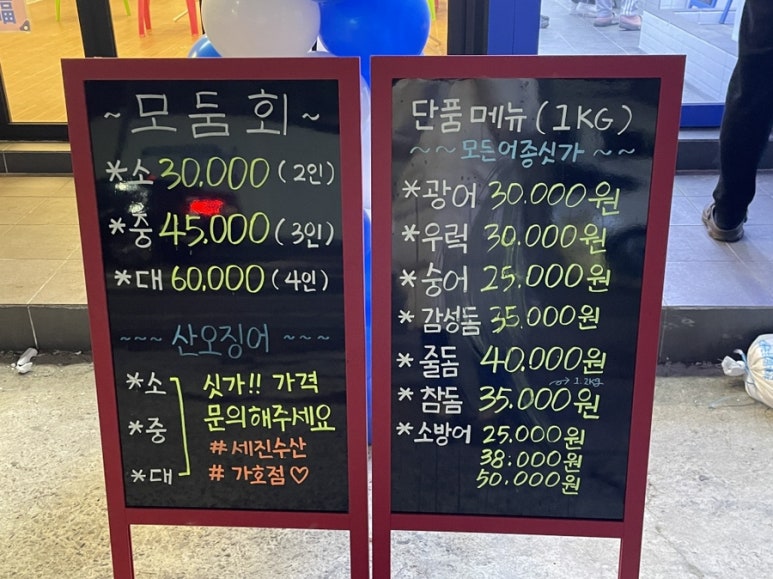 ~ 모둠회 ~
*소 30,000 (2인)
*중 45,000 (3인)
*대 60,000 (4인)
~~~ 산오징어 ~~~
*소
*중
*대
싯가!! 가격
문의해주세요
#세진수산
#가호점♡
단품메뉴(1KG)
~~ 모든어종싯가 ~~
*광어 30.000원
*우럭 30.000원
*숭어 25.000원
*감성돔 35.000원
*줄돔 40.000원
→ 1.2kg
*참돔 35.000원
*소방어 25.000원
38.000원
50.000원